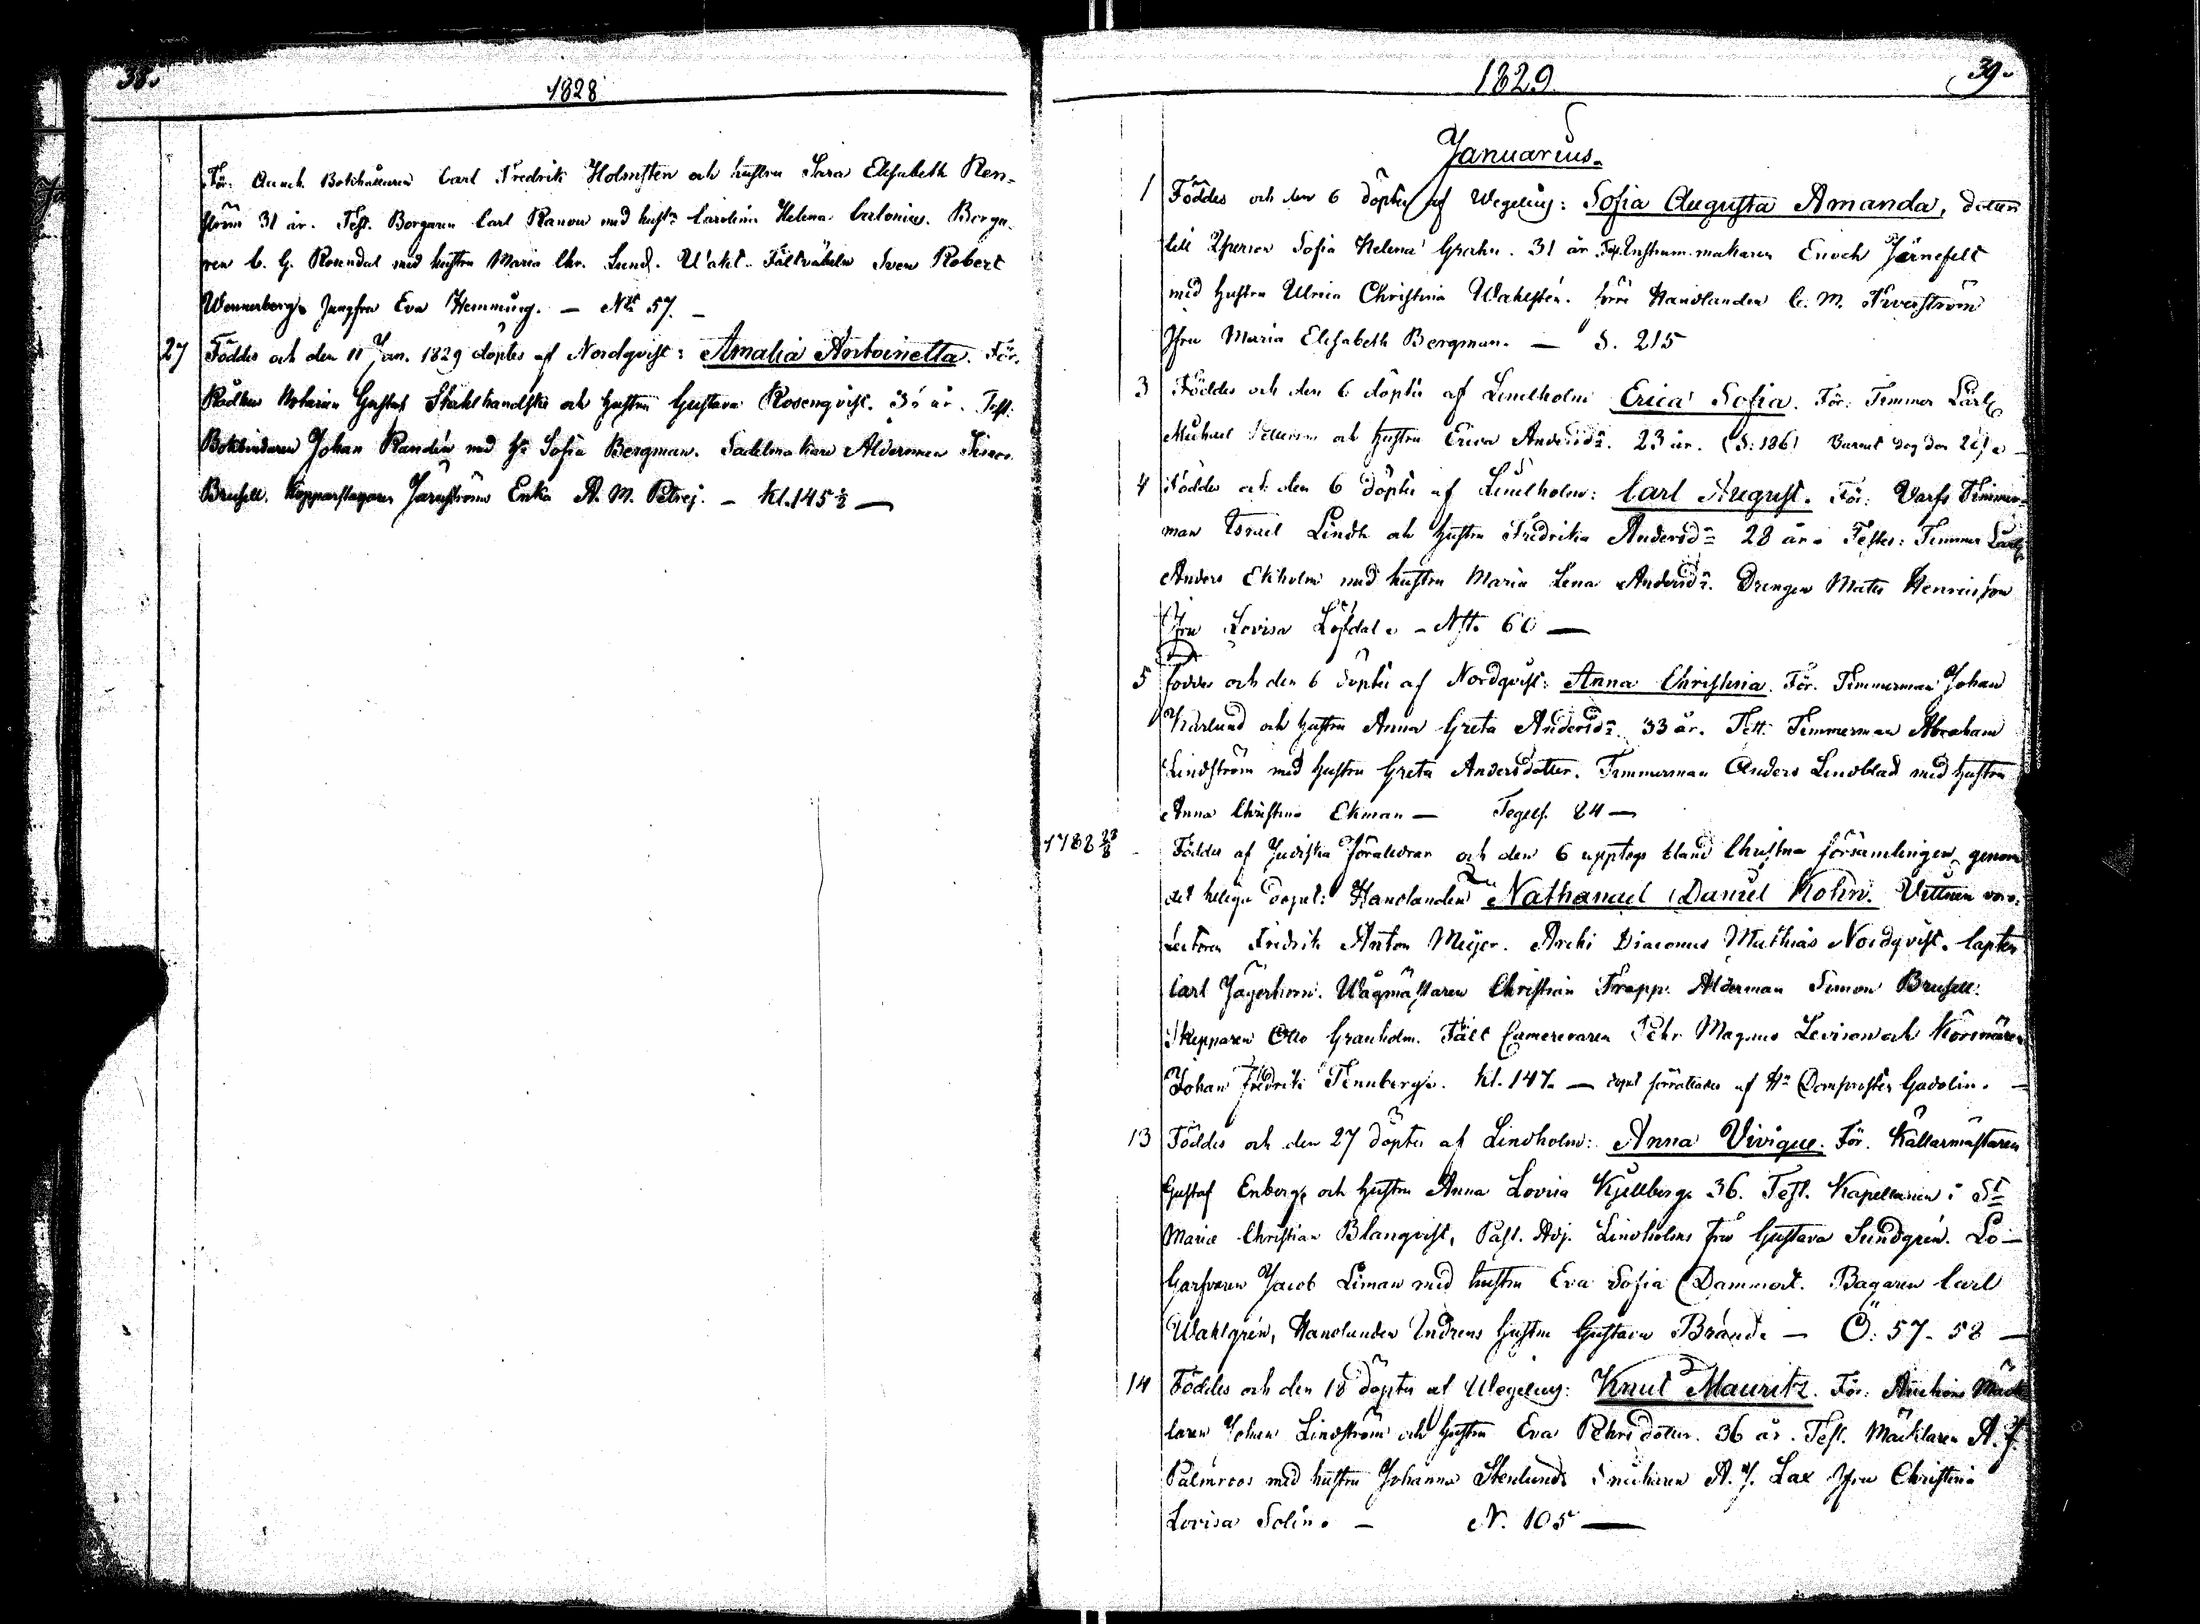 38.
1828
För. Carl Fredrik Holmsten och hustru Sara Elisabeth Ren-
ström 31 år. Test. Borgaren Carl Ranow med hust. Carolina Helena Calonius. Borga-
ren C. G. Rosendal med hustru Maria Chr. Lund. Fältväbeln Sven Robert
Wennerberg, Jungfru Eva Hemming. — 57. —
27 Föddes och den 11 Jan. 1829 döptes af Nordqvist: Amalia Antoinetta. För.
Rådhus Notarien Gustaf Stålhandske och hustru Gustava Rosenqvist. år. Test.
Bokbindaren Johan Randén med Sofia Bergman. Sadelmakare Åldermen Simon
Brusell. Kopparslagaren Järnströms Enka A. M. Petrej. — Kl. 145 ½ —
1829
39.
Januarius.
1 Föddes och den 6 döptes af Wegelius: Sofia Augusta Amanda, dotter
till Sofia Helena Grahn. 31 år Instrum.makaren Enoch Järnefelt
med hustru Ulrica Christina Wahlstén. Handlanden C. M.
Jfru Maria Elisabeth Bergman. — S. 215
3 Föddes och den 6 döptes af Lindholm Erica Sofia. För: Timmer Lärl.
Michael och hustru Erica Andersdr. 23 år. (S: 186) Barnet dog den
4 Föddes och den 6 döptes af Lindholm: Carl August. För: Varfs Timmer-
man Israel Lindh och hustru Fredrika Andersdr 28 år. Testes: Timmer Lärl.
Anders Ekholm med hustru Maria Lena Andersdr. Drengen Mats Henricsson
Jfru Lovisa Löfdal. — 60 —
5 Föddes och den 6 döptes af Nordqvist: Anna Christina. För. Timmerman Johan
och hustru Anna Greta Andersdr. 33 år. Test. Timmerman Abraham
Lindström med hustru Greta Andersdotter. Timmerman Anders Lindblad med hustru
Anna Christina Ekman — 84 —
1788 28/8 Föddes af Judiska Föräldrar och den 6 upptogs bland Christna församlingen genom
det heliga dopet: Handlanden Nathanael Daniel Kohn. Vittnen voro:
Lectoren Fredrik Anton Meyer. Archi Diaconus Mathias Nordqvist. Capten
Carl Jägerhorn. Wågmästaren Christian Trapp. Alderman Simon Brusell.
Skepparen Otto Granholm. Fält Camereraren Pehr Magnus Levison och Körsnären
Johan Fredrik Tennberg. Kl. 147. — dopet förrättades af Hr Domprosten Gadolin. —
13 Föddes och den 27 döptes af Lindholm: Anna Vivique. För. Källarmästaren
Gustaf Enberg och hustru Anna Lovisa Kjellberg 36. Test. Kapellanen i St
Mariæ Christian Blanqvist, Past. Adj. Lindholms fru Gustava Sundgrén. Lo-
Garfvaren Jacob Liman med hustru Eva Sofia Dammert. Bagaren Carl
Wahlgrén, Handlanden Indrens hustru Gustava Brand. — Ö: 57-58 —
14 Föddes och den 18 döptes af Wegelius: Knut Mauritz. För: Auctions Mäck-
laren Johan Lindström och hustru Eva Pehrsdotter. 36 år. Test. Mäcklaren A. J.
Palmroos med hustru Johanna Stenlund. A. J. Lax Jfru Christina
Lovisa Solin. — N. 105 —